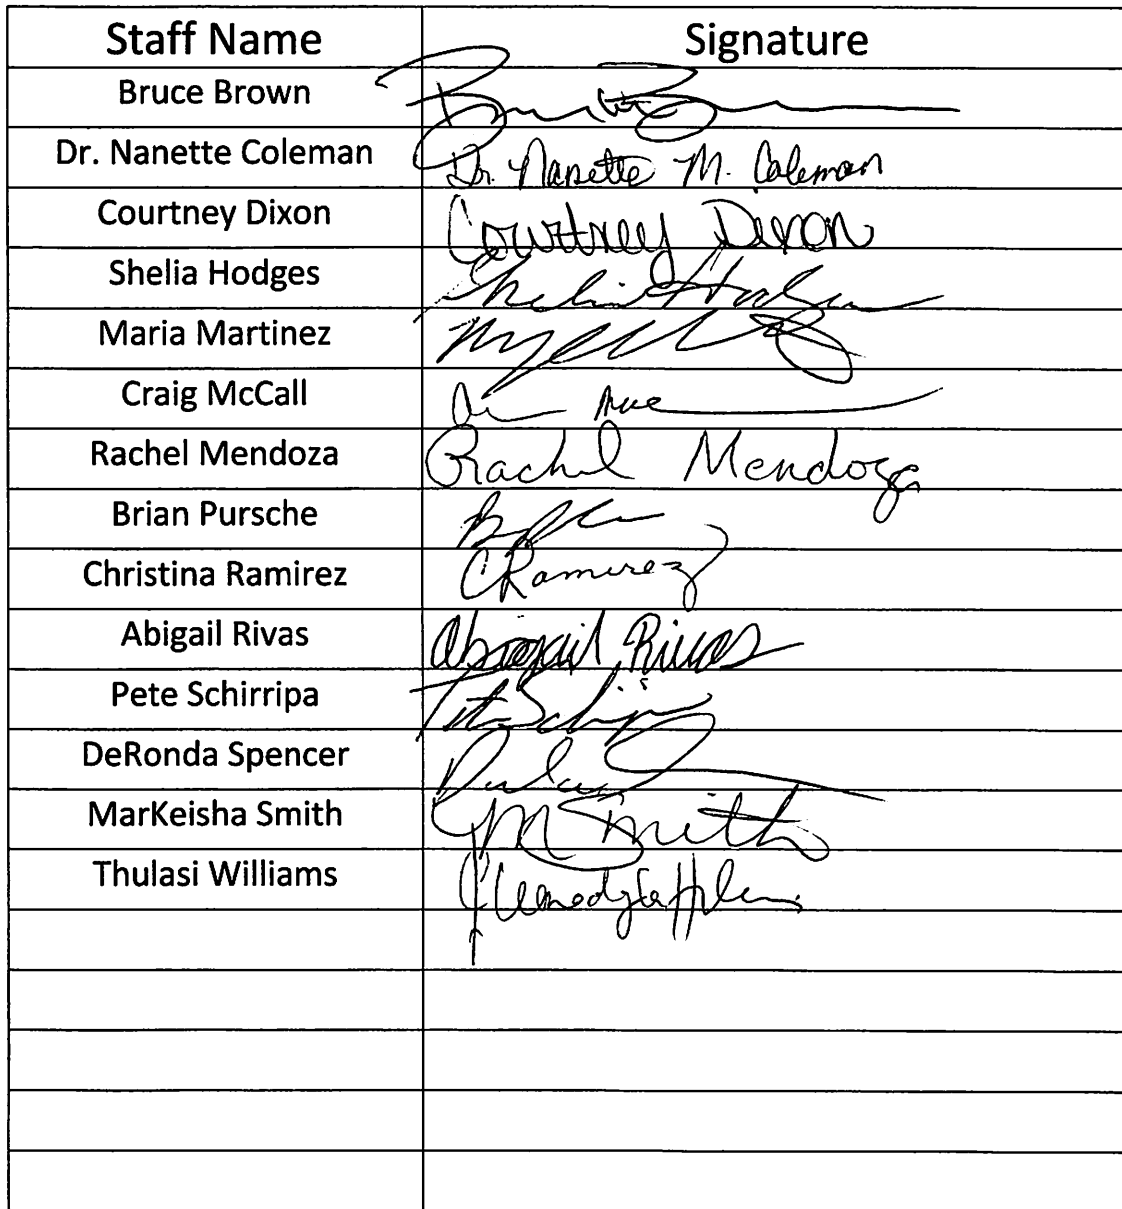 Staff Name Signature
Bruce Brown
Dr. Nanette Coleman Dr. Nanette M. Coleman
Courtney Dixon Courtney Dixon
Shelia Hodges Shelia Hodges
Maria Martinez
Craig McCall
Rachel Mendoza Rachel Mendoza
Brian Pursche
Christina Ramirez CRamirez
Abigail Rivas Abigail Rivas
Pete Schirripa
DeRonda Spencer
MarKeisha Smith M Smith
Thulasi Williams